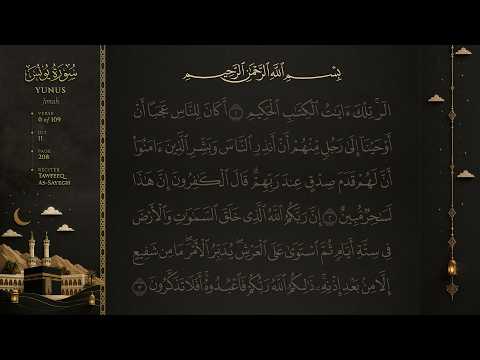 سُورَةُ يُونُسَ
YUNUS
Jonah
VERSE
0 of 109
JUZ
11
PAGE
208
RECITER
TAWFEEQ
AS-SAYEGH
بِسْمِ ٱللَّهِ ٱلرَّحْمَٰنِ ٱلرَّحِيمِ
الٓرۚ تِلْكَ ءَايَٰتُ ٱلْكِتَٰبِ ٱلْحَكِيمِ ١ أَكَانَ لِلنَّاسِ عَجَبًا أَنْ
أَوْحَيْنَآ إِلَىٰ رَجُلٍ مِّنْهُمْ أَنْ أَنذِرِ ٱلنَّاسَ وَبَشِّرِ ٱلَّذِينَ ءَامَنُوٓا۟
أَنَّ لَهُمْ قَدَمَ صِدْقٍ عِندَ رَبِّهِمْۗ قَالَ ٱلْكَٰفِرُونَ إِنَّ هَٰذَا
لَسَٰحِرٌ مُّبِينٌ ٢ إِنَّ رَبَّكُمُ ٱللَّهُ ٱلَّذِى خَلَقَ ٱلسَّمَٰوَٰتِ وَٱلْأَرْضَ
فِى سِتَّةِ أَيَّامٍ ثُمَّ ٱسْتَوَىٰ عَلَى ٱلْعَرْشِۖ يُدَبِّرُ ٱلْأَمْرَۖ مَا مِن شَفِيعٍ
إِلَّا مِنۢ بَعْدِ إِذْنِهِۦۚ ذَٰلِكُمُ ٱللَّهُ رَبُّكُمْ فَٱعْبُدُوهُۚ أَفَلَا تَذَكَّرُونَ ٣